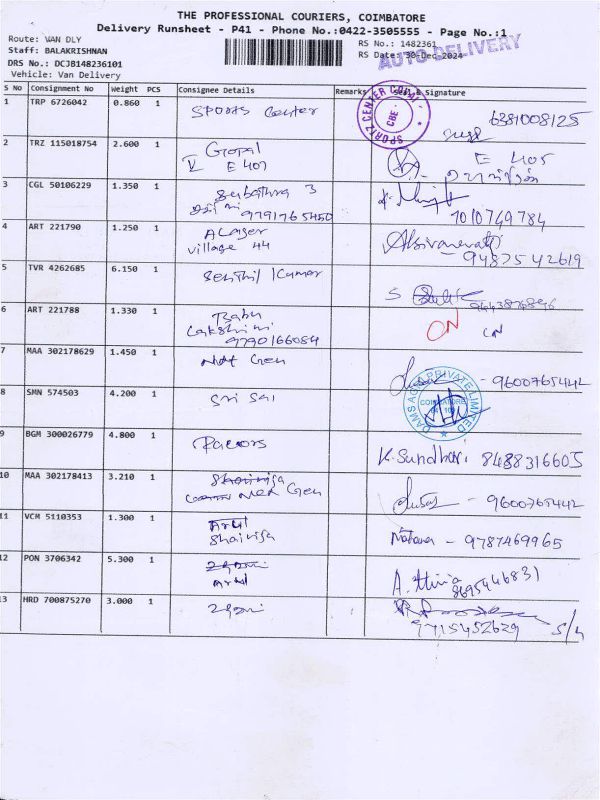 THE PROFESSIONAL COURIERS, COIMBATORE
Delivery Runsheet - P41 - Phone No.:0422-3505555 - Page No.:1
Route: VAN DLY
Staff: BALAKRISHNAN
DRS No.: DCJB148236101
Vehicle: Van Delivery
RS No.: 1482361
RS Date: 30-Dec-2024
AUTO DELIVERY
S No Consignment No Weight PCS Consignee Details Remarks Seal & Signature
1 TRP 6726042 0.860 1 Sports Center 6381008125
SPORTZ CENTER COIM CBE
2 TRZ 115018754 2.600 1 Gopal E 405
E 407
3 CGL 50106229 1.350 1 Subathra 3
9791765450 1010749784
4 ART 221790 1.250 1 A Lager
village 44 9487542619
5 TVR 4262685 6.150 1 Senthil Kumar
S
6 ART 221788 1.330 1 Babu ON
Lakshmi
9790166084
7 MAA 302178629 1.450 1 Next Gen - 9600765442
8 SMN 574503 4.200 1 Sri Sai
PRIVATE LIMITED COIMBATORE
9 BGM 300026779 4.800 1 K. Sundhari 8488316605
10 MAA 302178413 3.210 1 Shairisa
Next Gen - 9600765442
11 VCM 5110353 1.300 1 Arul
Shairisa - 9787469965
12 PON 3706342 5.300 1 Arul 8695446831
13 HRD 700875270 3.000 1 9715452629 S/H